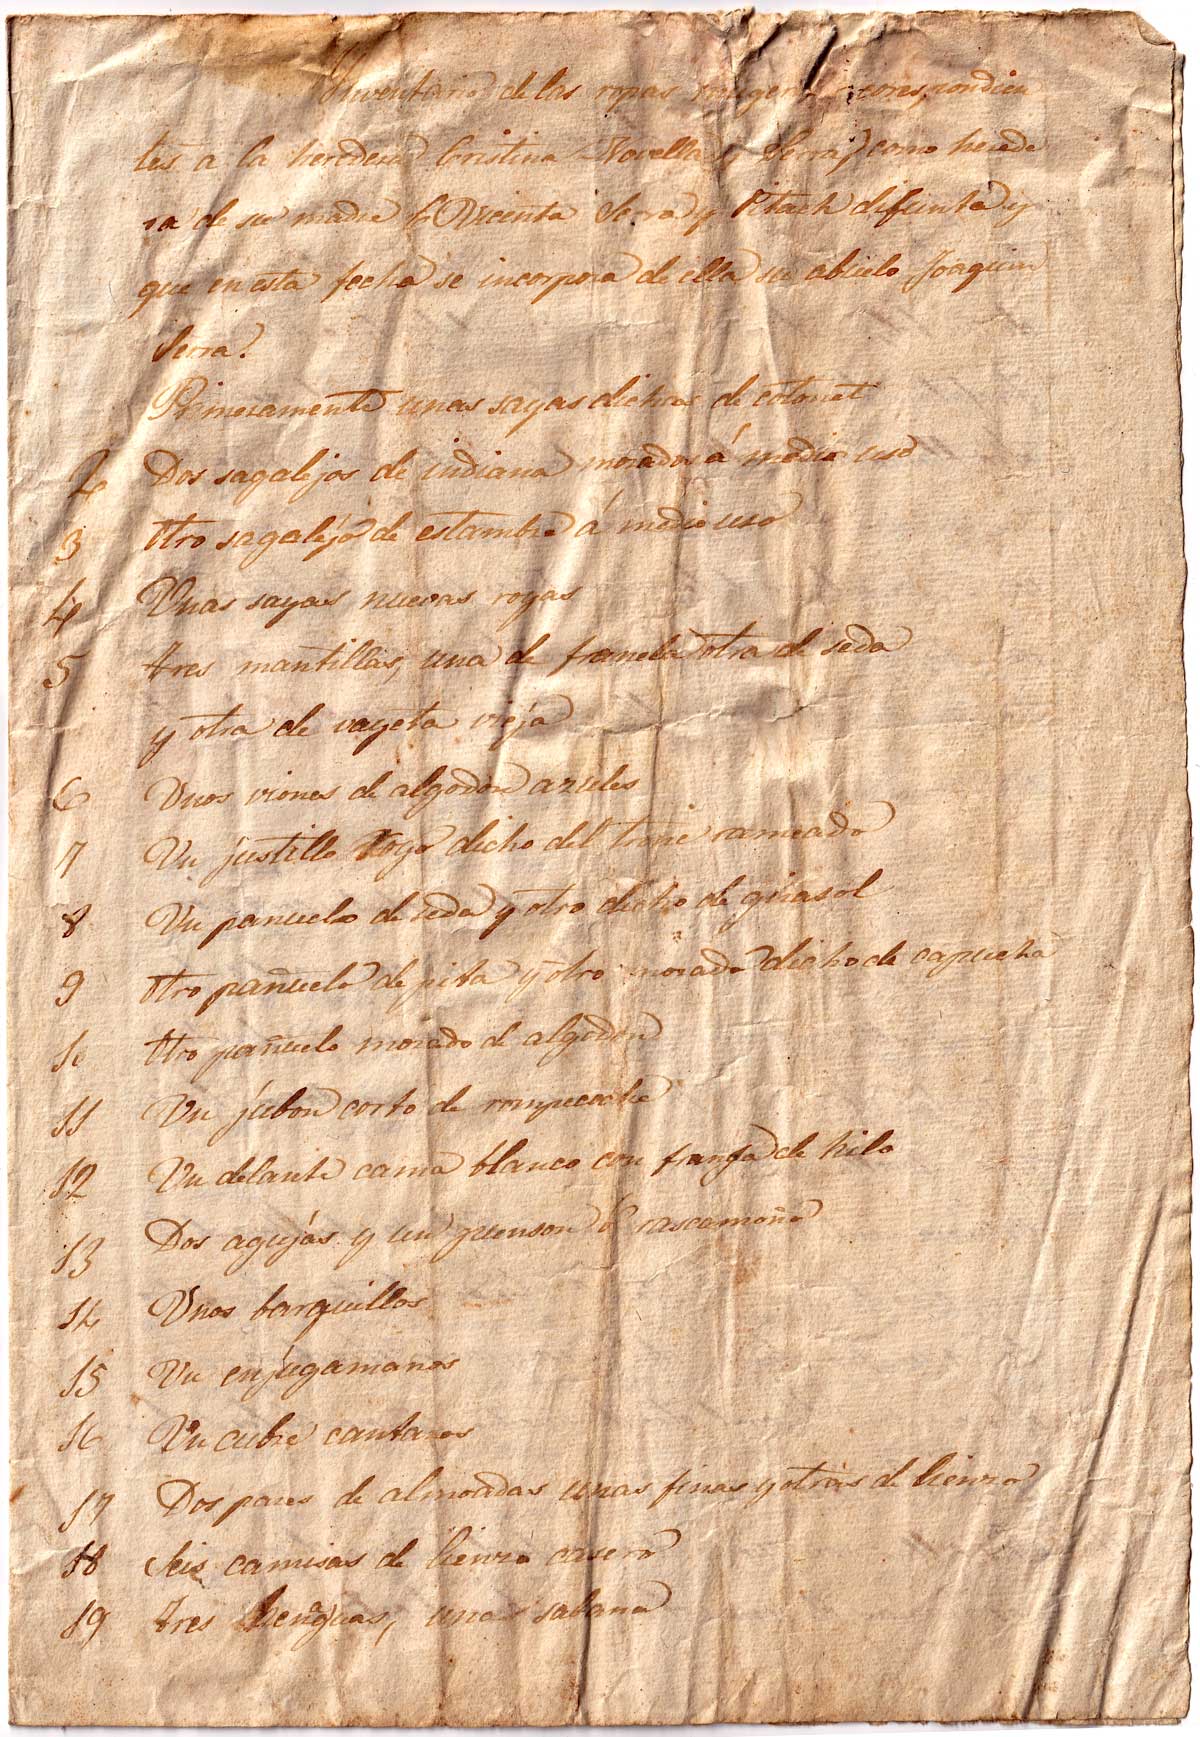 Inventario de las ropas mugeriles correspondien
tes a la heredera Cristina Novella y Serra, como herede
ra de su madre Vicenta Serra y Vitach difunta y
que en esta fecha se incorpora de ella su abuelo Joaquin
Serra.
Primeramente unas sayas dichas de cotonet
2 Dos sagalejos de indiana morados á medio uso
3 Otro sagalejo de estambre á medio uso
4 Unas sayas nuevas royas
5 tres mantillas, una de franela otra de seda
y otra de vayeta vieja
6 Unos viones de algodon azules
7 Un justillo Royo dicho del trone rameado
8 Un pañuelo de seda y otro dicho de girasol
9 Otro pañuelo de pita y otro morado dicho de capucha
10 Otro pañuelo morado de algodon
11 Un jubon corto de rompecoche
12 Un delante cama blanco con franja de hilo
13 Dos agujas y un punson ó rascamoño
14 Unos barquillos
15 Un enjugamanos
16 Un cubre cantaros
17 Dos pares de almoadas unas finas y otras de lienzo
18 Seis camisas de lienzo casero
19 tres henaguas, una sabana